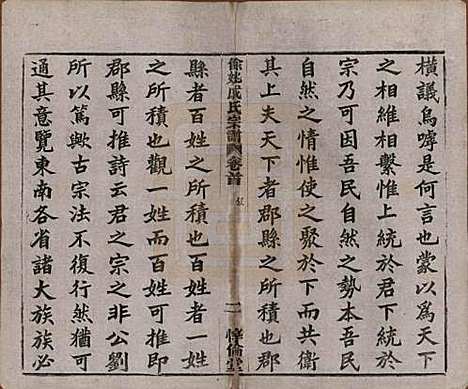 橫議烏嘑是何言也蒙以爲天下
之相維相繫惟上統於君下統於
宗乃可因吾民自然之勢本吾民
自然之情惟使之聚於下而共衛
其上夫天下者郡縣之所積也郡
徐姚戚氏宗譜 卷首 序 二 惇倫堂
縣者百姓之所積也百姓者一姓
之所積也觀一姓而百姓可推即
郡縣可推詩云君之宗之非公劉
所以篤歟古宗法不復行然猶可
通其意覽東南各省諸大族族必